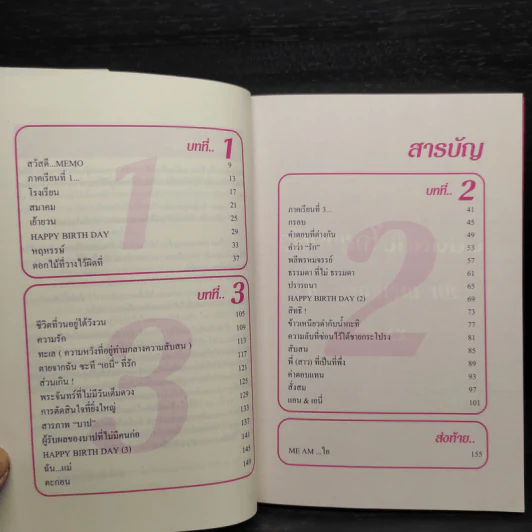 บทที่.. 1
สวัสดี...MEMO 9
ภาคเรียนที่ 1... 13
โรงเรียน 17
สมาคม 21
เย้ายวน 25
HAPPY BIRTH DAY 29
พฤหรรษ์ 33
ดอกไม้ที่วางไว้ผิดที่ 37
บทที่.. 3
ชีวิตที่วนอยู่ใต้วังวน 105
ความรัก 109
ทะเล ( ความหวังที่อยู่ท่ามกลางความสับสน ) 113
ตายจากฉัน ซะที "เอนี่" ที่รัก 117
ส่วนเกิน ! 121
พระจันทร์ที่ไม่มีวันเต็มดวง 125
การตัดสินใจที่ยิ่งใหญ่ 129
สารภาพ "บาป" 133
ผู้รับผลของบาปที่ไม่มีคนก่อ 137
HAPPY BIRTH DAY (3) 141
ฉัน...แม่ 145
ตะกอน 149
สารบัญ
บทที่.. 2
ภาคเรียนที่ 3... 41
กรอบ 45
คำตอบที่ต่างกัน 49
คำว่า "รัก" 53
พลีพรหมจรรย์ 57
ธรรมดา ที่ไม่ ธรรมดา 61
ปรารถนา 65
HAPPY BIRTH DAY (2) 69
สิทธิ ! 73
ข้าวเหนียวดำกับน้ำกะทิ 77
ความลับที่ซ่อนไว้ใต้ชายกระโปรง 81
สับสน 85
พี่ (สาว) ที่เป็นที่พึ่ง 89
คำตอบแทน 93
สั่งสม 97
แอน & เอนี่ 101
ส่งท้าย..
ME AM ...ไอ 155